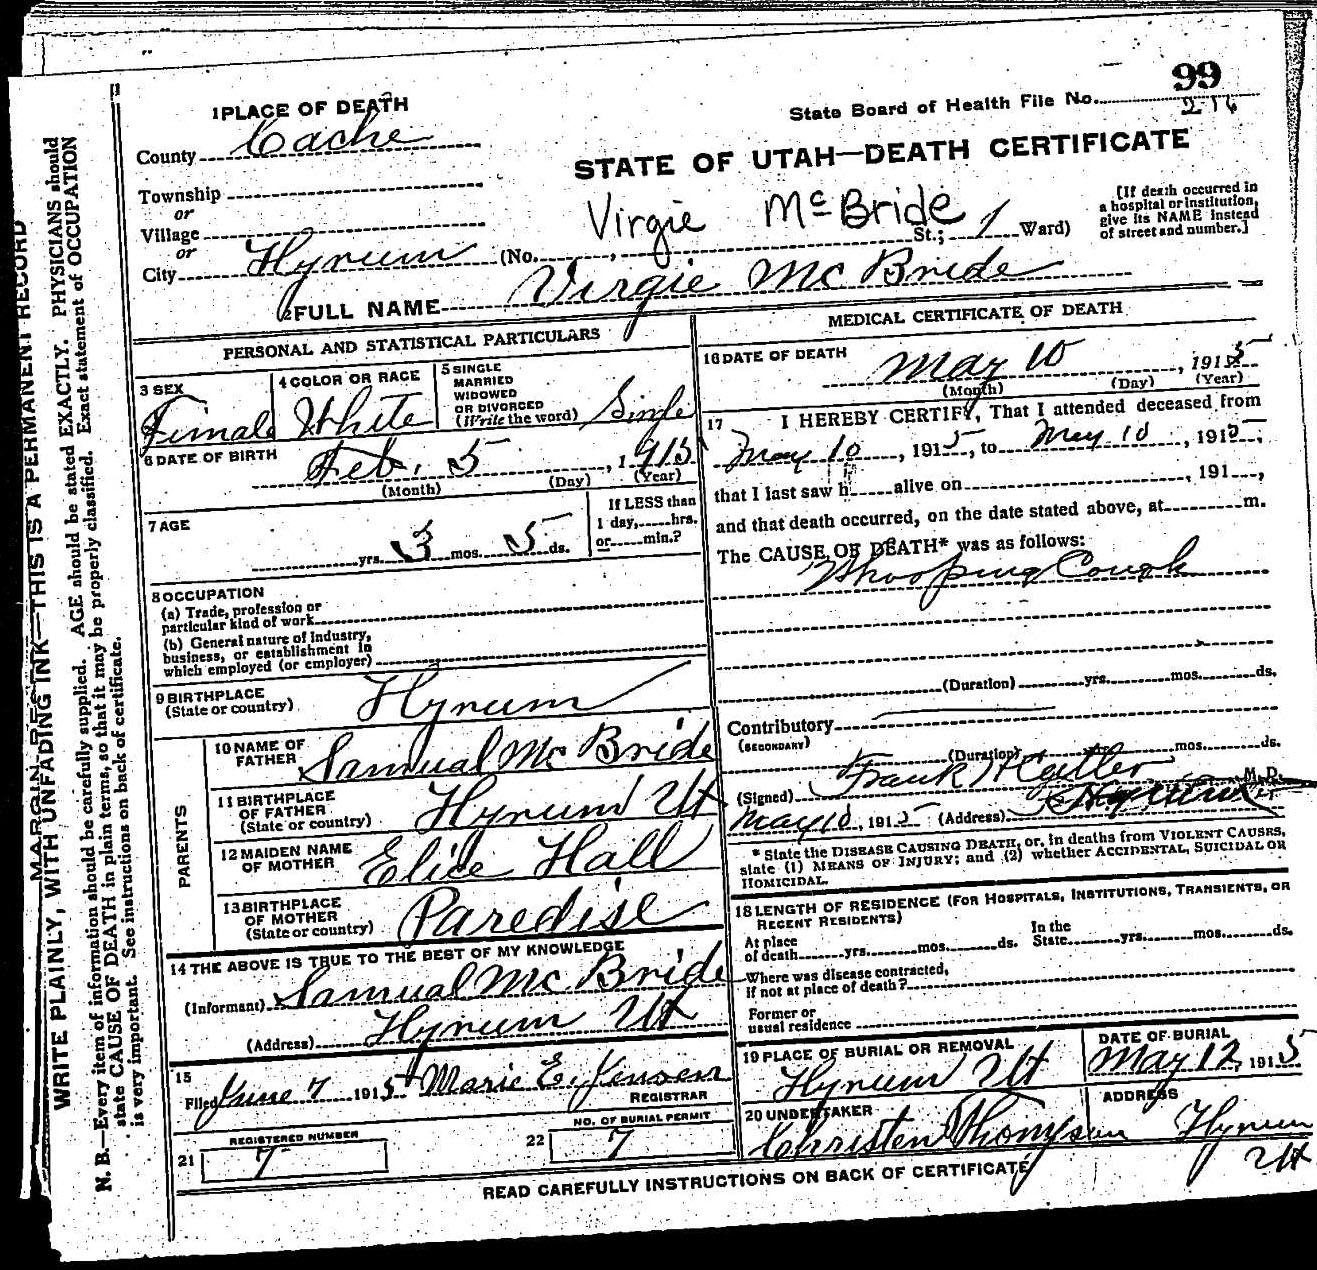 99
State Board of Health File No. 216
1 PLACE OF DEATH
County Cache
STATE OF UTAH—DEATH CERTIFICATE
Township
or
Village
or
City Hyrum (No. , St.; 1 Ward)
Virgie McBride
[If death occurred in
a hospital or institution,
give its NAME instead
of street and number.]
2 FULL NAME Virgie Mc Bride
PERSONAL AND STATISTICAL PARTICULARS
3 SEX
Female
4 COLOR OR RACE
White
5 SINGLE
MARRIED
WIDOWED
OR DIVORCED
(Write the word) Single
6 DATE OF BIRTH
Feb. 5, 1915
(Month) (Day) (Year)
7 AGE
yrs. 3 mos. 5 ds.
If LESS than
1 day, hrs.
or min.?
8 OCCUPATION
(a) Trade, profession or
particular kind of work
(b) General nature of industry,
business, or establishment in
which employed (or employer)
9 BIRTHPLACE
(State or country) Hyrum
PARENTS
10 NAME OF
FATHER Samual Mc Bride
11 BIRTHPLACE
OF FATHER
(State or country) Hyrum Ut
12 MAIDEN NAME
OF MOTHER Elice Hall
13 BIRTHPLACE
OF MOTHER
(State or country) Paredise
14 THE ABOVE IS TRUE TO THE BEST OF MY KNOWLEDGE
(Informant) Samual Mc Bride
(Address) Hyrum Ut
15
Filed June 7 1915 Marie E. Jensen
REGISTRAR
REGISTERED NUMBER
21 7
NO. OF BURIAL PERMIT
22 7
MEDICAL CERTIFICATE OF DEATH
16 DATE OF DEATH
May 10, 1915
(Month) (Day) (Year)
17 I HEREBY CERTIFY, That I attended deceased from
May 10, 1915, to May 10, 1915;
that I last saw h alive on , 191 ,
and that death occurred, on the date stated above, at m.
The CAUSE OF DEATH* was as follows:
Whooping Cough
(Duration) yrs. mos. ds.
Contributory
(SECONDARY)
(Duration) yrs. mos. ds.
(Signed) Frank M. D.
May 10, 1915 (Address) Hyrum
* State the DISEASE CAUSING DEATH, or, in deaths from VIOLENT CAUSES,
state (1) MEANS OF INJURY; and (2) whether ACCIDENTAL, SUICIDAL OR
HOMICIDAL.
18 LENGTH OF RESIDENCE (FOR HOSPITALS, INSTITUTIONS, TRANSIENTS, OR
RECENT RESIDENTS)
At place
of death yrs. mos. ds.
In the
State yrs. mos. ds.
Where was disease contracted,
if not at place of death?
Former or
usual residence
19 PLACE OF BURIAL OR REMOVAL
Hyrum Ut
DATE OF BURIAL
May 12, 1915
20 UNDERTAKER
Christen Thompson
ADDRESS
Hyrum
Ut
READ CAREFULLY INSTRUCTIONS ON BACK OF CERTIFICATE
WRITE PLAINLY, WITH UNFADING INK—THIS IS A PERMANENT RECORD
N. B.—Every item of information should be carefully supplied. AGE should be stated EXACTLY. PHYSICIANS should
state CAUSE OF DEATH in plain terms, so that it may be properly classified. Exact statement of OCCUPATION
is very important. See instructions on back of certificate.